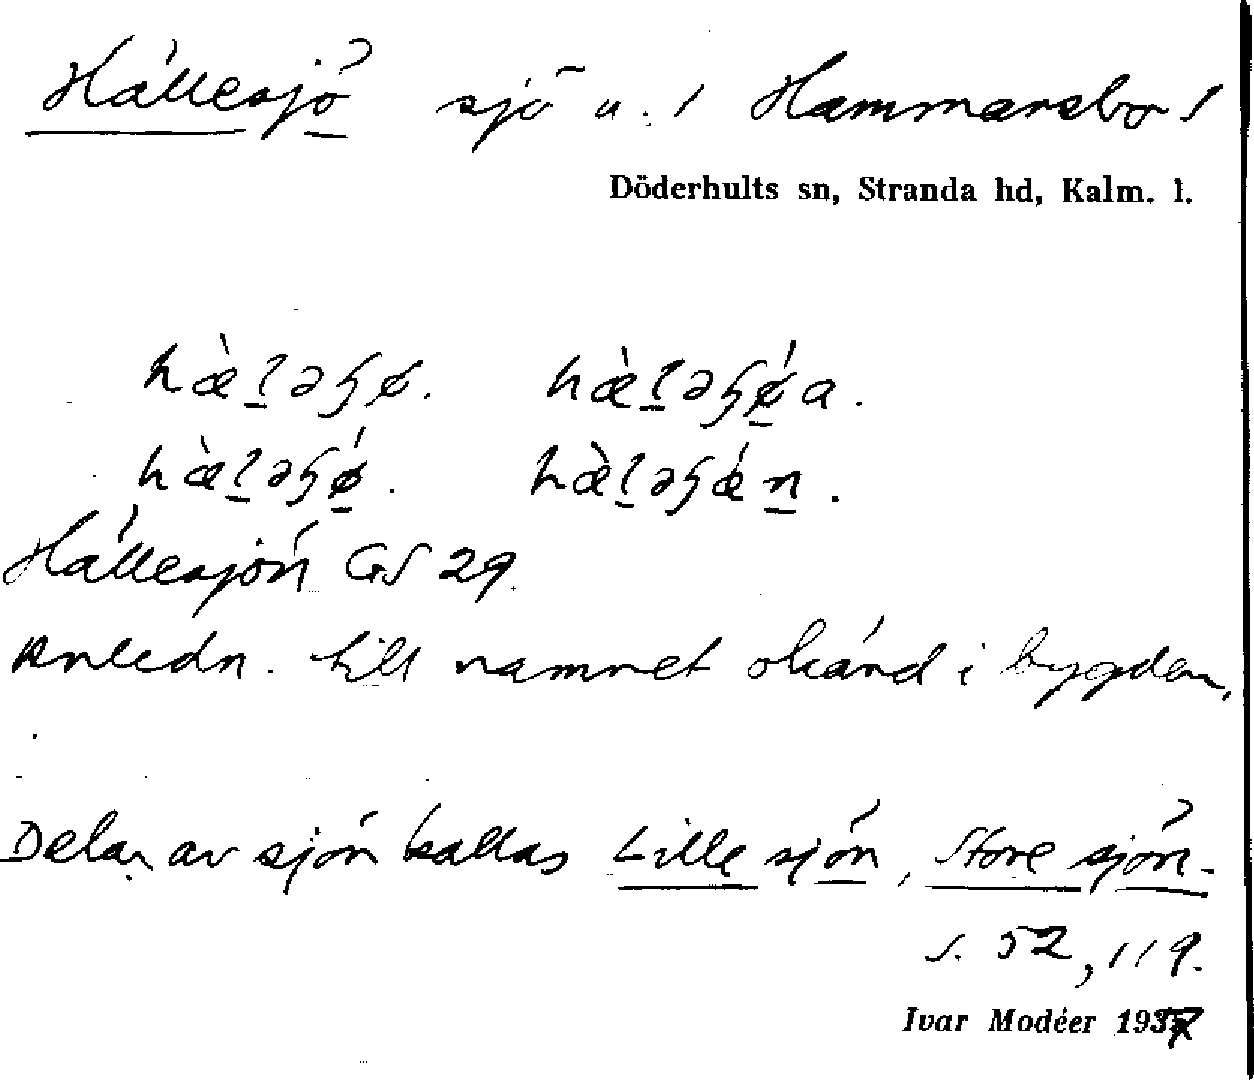 Hällesjö sjö u. / Hammarsbo /
Döderhults sn, Stranda hd, Kalm. l.
hæ̀ləɧø. hæ̀ləɧǿa.
hæ̀ləɧǿ. hæ̀ləɧǿn.
Hällesjön GS 29.
Anledn. till namnet okänd i bygden.
Delar av sjön kallas Lille sjön, Store sjön.
s. 52, 119.
Ivar Modéer 1937